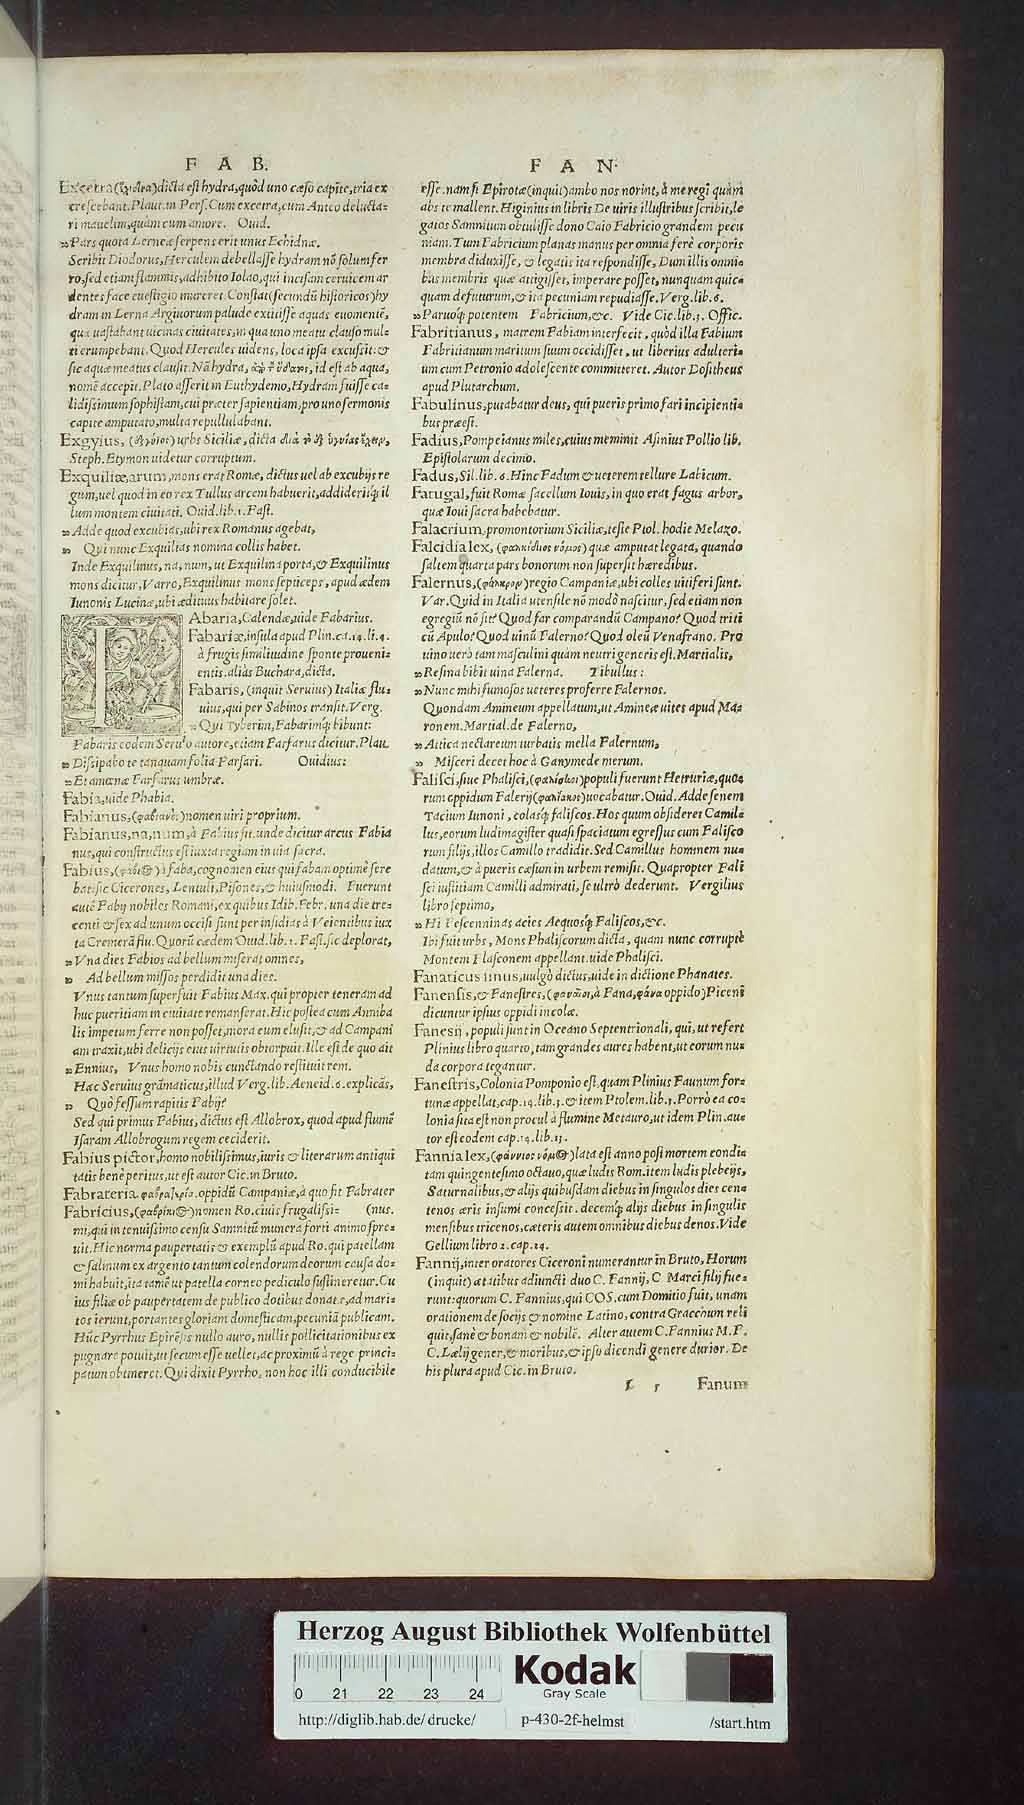 F A B.
Excetra (ἔχιδνα) dicta est hydra, quòd uno cæso capite, tria ex
crescebant. Plaut. in Pers. Cum excetra, cum Anteo deluctari
mauelim, quàm cum amore. Ouid.
Pars quota Lerneæ serpens erit unus Echidnæ.
Scribit Diodorus, Herculem debellasse hydram nõ solum fer
ro, sed etiam flammis, adhibito Iolao, qui incisam ceruicem ar
dentes face euestigio inureret. Constat (secundũ historicos) hy
dram in Lerna Argiuorum palude extitisse aquas euomentẽ,
qua uastabant uicinas ciuitates, in qua uno meatu clauso mul=
ti erumpebant. Quod Hercules uidens, loca ipsa excussit: &
sic aquæ meatus clausit. Nã hydra, id est ab aqua,
nomẽ accepit. Plato asserit in Euthydemo, Hydram fuisse ca=
lidissimum sophistam, cui præter sapientiam, pro uno sermonis
capite amputato, multa repullulabant.
Exgyius, urbs Siciliæ, dicta
Steph. Etymon uidetur corruptum.
Exquiliæ, arum, mons erat Romæ, dictus uel ab excubijs re
gum, uel quod in eo rex Tullus arcem habuerit, addideritq́; il
lum montem ciuitati. Ouid. lib. 1. Fast.
Adde quod excubias, ubi rex Romanus agebat,
Qui nunc Exquilias nomina collis habet.
Inde Exquilinus, na, num, ut Exquilina porta, & Exquilinus
mons dicitur, Varro, Exquilinus mons septiceps, apud ædem
Iunonis Lucinæ, ubi ædituus habitare solet.
FAbaria, Calendæ, uide Fabarius.
Fabariæ, insula apud Plin. ca. 14. li. 4.
à frugis similitudine sponte proueni=
entis. aliâs Buchara, dicta.
Fabaris, (inquit Seruius) Italiæ flu=
uius, qui per Sabinos transit. Verg.
Qui Tyberim, Fabarimq́; bibunt:
Fabaris eodem Seruio autore, etiam Farfarus dicitur. Plau.
Dissipabo te tanquam folia Farfari. Ouidius:
Et amœnæ Farfarus umbræ.
Fabia, uide Phabia.
Fabianus, (φαβιανὸς) nomen uiri proprium.
Fabianus, na, num, à Fabius fit. unde dicitur arcus Fabia
nus, qui constructus est iuxta regiam in uia sacra.
Fabius, à faba, cognomen eius qui fabam optimè sere
bat: sic Cicerones, Lentuli, Pisones, & huiusmodi. Fuerunt
autẽ Fabij nobiles Romani, ex quibus Idib. Febr. una die tre=
centi & sex ad unum occisi sunt per insidias à Veientibus iux
ta Cremerã flu. Quorũ cædem Ouid. lib. 2. Fast. sic deplorat,
Vna dies Fabios ad bellum miserat omnes,
Ad bellum missos perdidit una dies.
Vnus tantum superfuit Fabius Max. qui propter teneram ad
huc pueritiam in ciuitate remanserat. Hic postea cum Anniba
lis impetum ferre non posset, mora eum elusit, & ad Campani
am traxit, ubi delicijs eius uirtutis obtorpuit. Ille est de quo ait
Ennius, Vnus homo nobis cunctando restituit rem.
Hæc Seruius grãmaticus, illud Verg. lib. Aeneid. 6. explicãs,
Quò fessum rapitis Fabij?
Sed qui primus Fabius, dictus est Allobrox, quod apud flumẽ
Isaram Allobrogum regem ceciderit.
Fabius pictor, homo nobilissimus, iuris & literarum antiqui
tatis benè peritus, ut est autor Cic. in Bruto.
Fabrateria, oppidũ Campaniæ, à quo fit Fabrater
Fabricius, nomen Ro. ciuis frugalissi= (nus.
mi, qui in tenuissimo censu Samnitũ munera forti animo spre=
uit. Hic norma paupertatis & exemplũ apud Ro. qui patellam
& salinum ex argento tantum colendorum deorum causa do=
mi habuit, ita tamẽ ut patella corneo pediculo sustineretur. Cu
ius filiæ ob paupertatem de publico dotibus donatæ, ad mari=
tos ierunt, portantes gloriam domesticam, pecuniã publicam.
Hũc Pyrrhus Epirẽsis nullo auro, nullis pollicitationibus ex
pugnare potuit, ut secum esse uellet, ac proximũ à rege princi=
patum obtineret. Qui dixit Pyrrho, non hoc illi conducibile
F A N.
esse. nam si Epirotæ (inquit) ambo nos norint, à me regi quàm
abs te mallent. Higinius in libris De uiris illustribus scribit, le
gatos Samnitum obtulisse dono Caio Fabricio grandem pecu
niam. Tum Fabricium planas manus per omnia ferè corporis
membra diduxisse, & legatis ita respondisse, Dum illis omni=
bus membris quæ attigisset, imperare posset, nunquam quic=
quam defuturum, & ita pecuniam repudiasse. Verg. lib. 6.
Paruoq́; potentem Fabricium, &c. Vide Cic. lib. 3. Offic.
Fabritianus, matrem Fabiam interfecit, quòd illa Fabium
Fabritianum maritum suum occidisset, ut liberius adulteri=
um cum Petronio adolescente committeret. Autor Dositheus
apud Plutarchum.
Fabulinus, putabatur deus, qui pueris primo fari incipienti=
bus præest.
Fadius, Pompeianus miles, cuius meminit Asinius Pollio lib.
Epistolarum decimo.
Fadus, Sil. lib. 6. Hinc Fadum & ueterem tellure Labicum.
Fatugal, fuit Romæ sacellum Iouis, in quo erat fagus arbor,
quæ Ioui sacra habebatur.
Falacrium, promontorium Siciliæ, teste Ptol. hodie Melazo.
Falcidia lex, (φαλκίδιος νόμος) quæ amputat legata, quando
saltem quarta pars bonorum non superfit hæredibus.
Falernus, regio Campaniæ, ubi colles uiniferi sunt.
Var. Quid in Italia utensile nõ modò nascitur, sed etiam non
egregiũ nõ fit? Quod far comparandũ Campano? Quod triti
cũ Apulo? Quod uinũ Falerno? Quod oleũ Venafrano. Pro
uino uerò tam masculini quàm neutri generis est. Martialis,
Resina bibit uina Falerna. Tibullus:
Nunc mihi fumosos ueteres proferre Falernos.
Quondam Amineum appellatum, ut Amineæ uites apud Ma=
ronem. Martial. de Falerno,
Attica nectareum turbatis mella Falernum,
Misceri decet hoc à Ganymede merum.
Falisci, siue Phalisci, populi fuerunt Hetruriæ, quo=
rum oppidum Falerij uocabatur. Ouid. Adde senem
Tacium Iunoni, colasq́; faliscos. Hos quum obsideret Camil=
lus, eorum ludimagister quasi spaciatum egressus cum Falisco
rum filijs, illos Camillo tradidit. Sed Camillus hominem nu=
datum, & à pueris cæsum in urbem remisit. Quapropter Fali
sci iustitiam Camilli admirati, se ultrò dederunt. Vergilius
libro septimo,
Hi Fescenninas acies Aequosq́; Faliscos, &c.
Ibi fuit urbs, Mons Phaliscorum dicta, quam nunc corruptè
Montem Flasconem appellant. uide Phalisci.
Fanaticus sinus, uulgò dictus, uide in dictione Phanates.
Fanensis, & Fanestres, à Fana, oppido) Piceni
dicuntur ipsius oppidi incolæ.
Fanesij, populi sunt in Oceano Septentrionali, qui, ut refert
Plinius libro quarto, tam grandes aures habent, ut eorum nu=
da corpora tegantur.
Fanestris, Colonia Pomponio est, quam Plinius Faunum for=
tunæ appellat, cap. 14. lib. 3. & item Ptolem. lib. 3. Porrò ea co=
lonia sita est non procul à flumine Metauro, ut idem Plin. au=
tor est eodem cap. 14. lib. 13.
Fannia lex, lata est anno post mortem condi=
tam quingentesimo octauo, quæ ludis Rom. item ludis plebeijs,
Saturnalibus, & alijs quibusdam diebus in singulos dies cen=
tenos æris insumi concessit. decemq́; alijs diebus in singulis
mensibus tricenos, cæteris autem omnibus diebus denos. Vide
Gellium libro 2. cap. 24.
Fannij, inter oratores Ciceroni numerantur in Bruto, Horum
(inquit) ætatibus adiuncti duo C. Fannij, C. Marci filij fue=
runt: quorum C. Fannius, qui COS. cum Domitio fuit, unam
orationem de socijs & nomine Latino, contra Gracchum reli
quit, sanè & bonam & nobilẽ. Alter autem C. Fannius M. F.
C. Lælij gener, & moribus, & ipso dicendi genere durior. De
his plura apud Cic. in Bruto.
Fanum
Herzog August Bibliothek Wolfenbüttel
0 21 22 23 24
Kodak
Gray Scale
http://diglib.hab.de/drucke/ p-430-2f-helmst /start.htm